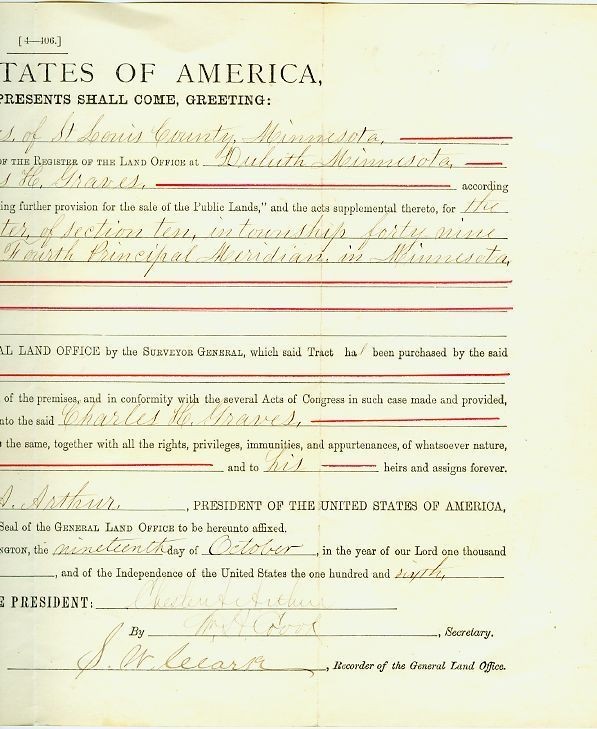 [4—106.]
TATES OF AMERICA,
PRESENTS SHALL COME, GREETING:
s, of St Louis County, Minnesota,
OF THE REGISTER OF THE LAND OFFICE at Duluth Minnesota,
s H. Graves, according
ing further provision for the sale of the Public Lands," and the acts supplemental thereto, for the
ter, of section ten, in township forty nine
Fourth Principal Meridian, in Minnesota,
AL LAND OFFICE by the SURVEYOR GENERAL, which said Tract has been purchased by the said
of the premises, and in conformity with the several Acts of Congress in such case made and provided,
nto the said Charles H. Graves,
the same, together with all the rights, privileges, immunities, and appurtenances, of whatsoever nature,
and to his heirs and assigns forever.
A. Arthur, PRESIDENT OF THE UNITED STATES OF AMERICA,
Seal of the GENERAL LAND OFFICE to be hereunto affixed.
NGTON, the nineteenth day of October, in the year of our Lord one thousand
, and of the Independence of the United States the one hundred and sixth,
E PRESIDENT: Chester A. Arthur
By , Secretary.
S. W. Clark, Recorder of the General Land Office.